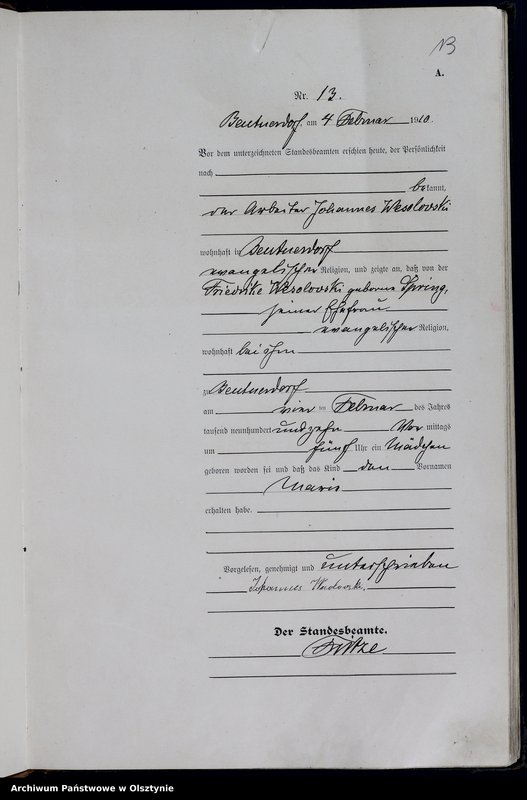 13
A.
Nr. 13.
Beutnerdorf, am 4 Februar 1910.
Vor dem unterzeichneten Standesbeamten erschien heute, der Persönlichkeit
nach
bekannt,
der Arbeiter Johannes Wesolovski
wohnhaft in Beutnerdorf
evangelischer Religion, und zeigte an, daß von der
Friedrike Wesolovski geborne Spring,
seiner Ehefrau
evangelischer Religion,
wohnhaft bei ihm
zu Beutnerdorf
am vier ten Februar des Jahres
tausend neunhundert und zehn Vor mittags
um fünf Uhr ein Mädchen
geboren worden sei und daß das Kind den Vornamen
Marie
erhalten habe.
Vorgelesen, genehmigt und unterschrieben
Johannes
Der Standesbeamte.
Archiwum Państwowe w Olsztynie